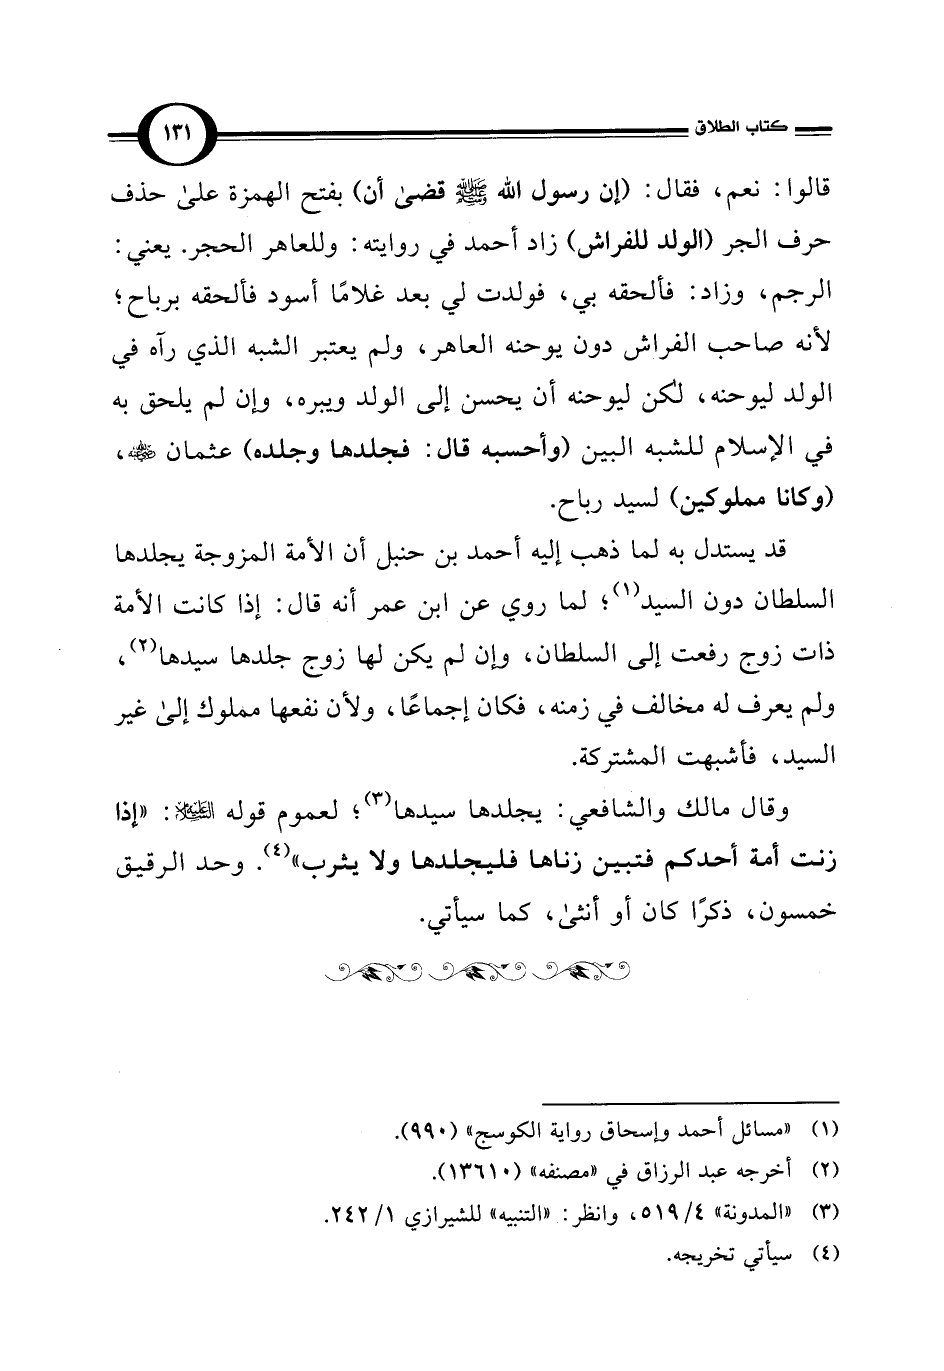 كتاب الطلاق
١٣١
قالوا: نعم، فقال: (إن رسول الله ﷺ قضىٰ أن) بفتح الهمزة علىٰ حذف
حرف الجر (الولد للفراش) زاد أحمد في روايته: وللعاهر الحجر. يعني:
الرجم، وزاد: فألحقه بي، فولدت لي بعد غلامًا أسود فألحقه برباح؛
لأنه صاحب الفراش دون يوحنه العاهر، ولم يعتبر الشبه الذي رآه في
الولد ليوحنه، لكن ليوحنه أن يحسن إلى الولد ويبره، وإن لم يلحق به
في الإسلام للشبه البين (وأحسبه قال: فجلدها وجلده) عثمان رضي الله عنه،
(وكانا مملوكين) لسيد رباح.
قد يستدل به لما ذهب إليه أحمد بن حنبل أن الأمة المزوجة يجلدها
السلطان دون السيد(١)؛ لما روي عن ابن عمر أنه قال: إذا كانت الأمة
ذات زوج رفعت إلى السلطان، وإن لم يكن لها زوج جلدها سيدها(٢)،
ولم يعرف له مخالف في زمنه، فكان إجماعًا، ولأن نفعها مملوك إلىٰ غير
السيد، فأشبهت المشتركة.
وقال مالك والشافعي: يجلدها سيدها(٣)؛ لعموم قوله عليه السلام: «إذا
زنت أمة أحدكم فتبين زناها فليجلدها ولا يثرب»(٤). وحد الرقيق
خمسون، ذكرًا كان أو أنثىٰ، كما سيأتي.
(١) «مسائل أحمد وإسحاق رواية الكوسج» (٩٩٠).
(٢) أخرجه عبد الرزاق في «مصنفه» (١٣٦١٠).
(٣) «المدونة» ٤/ ٥١٩، وانظر: «التنبيه» للشيرازي ١/ ٢٤٢.
(٤) سيأتي تخريجه.